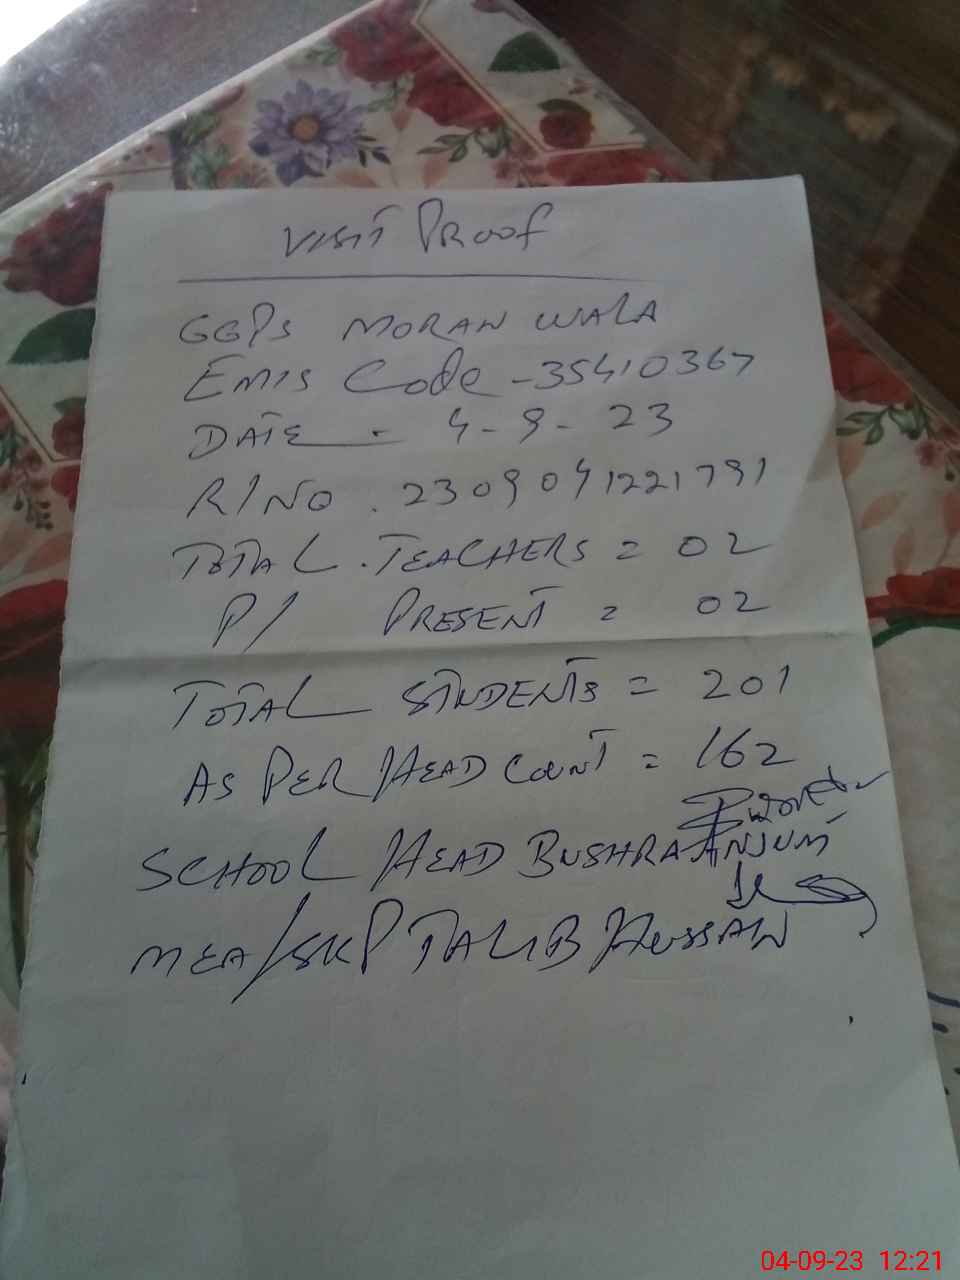 VISIT PROOF
GGPS MORAN WALA
EMIS Code - 35410367
DATE - 4-9-23
R/NO . 2309041221791
TOTAL . TEACHERS = 02
P/ PRESENT = 02
TOTAL STUDENTS = 201
AS PER HEAD COUNT = 162
SCHOOL HEAD BUSHRA ANJUM
MEA/SKP TALIB HUSSAIN
04-09-23 12:21